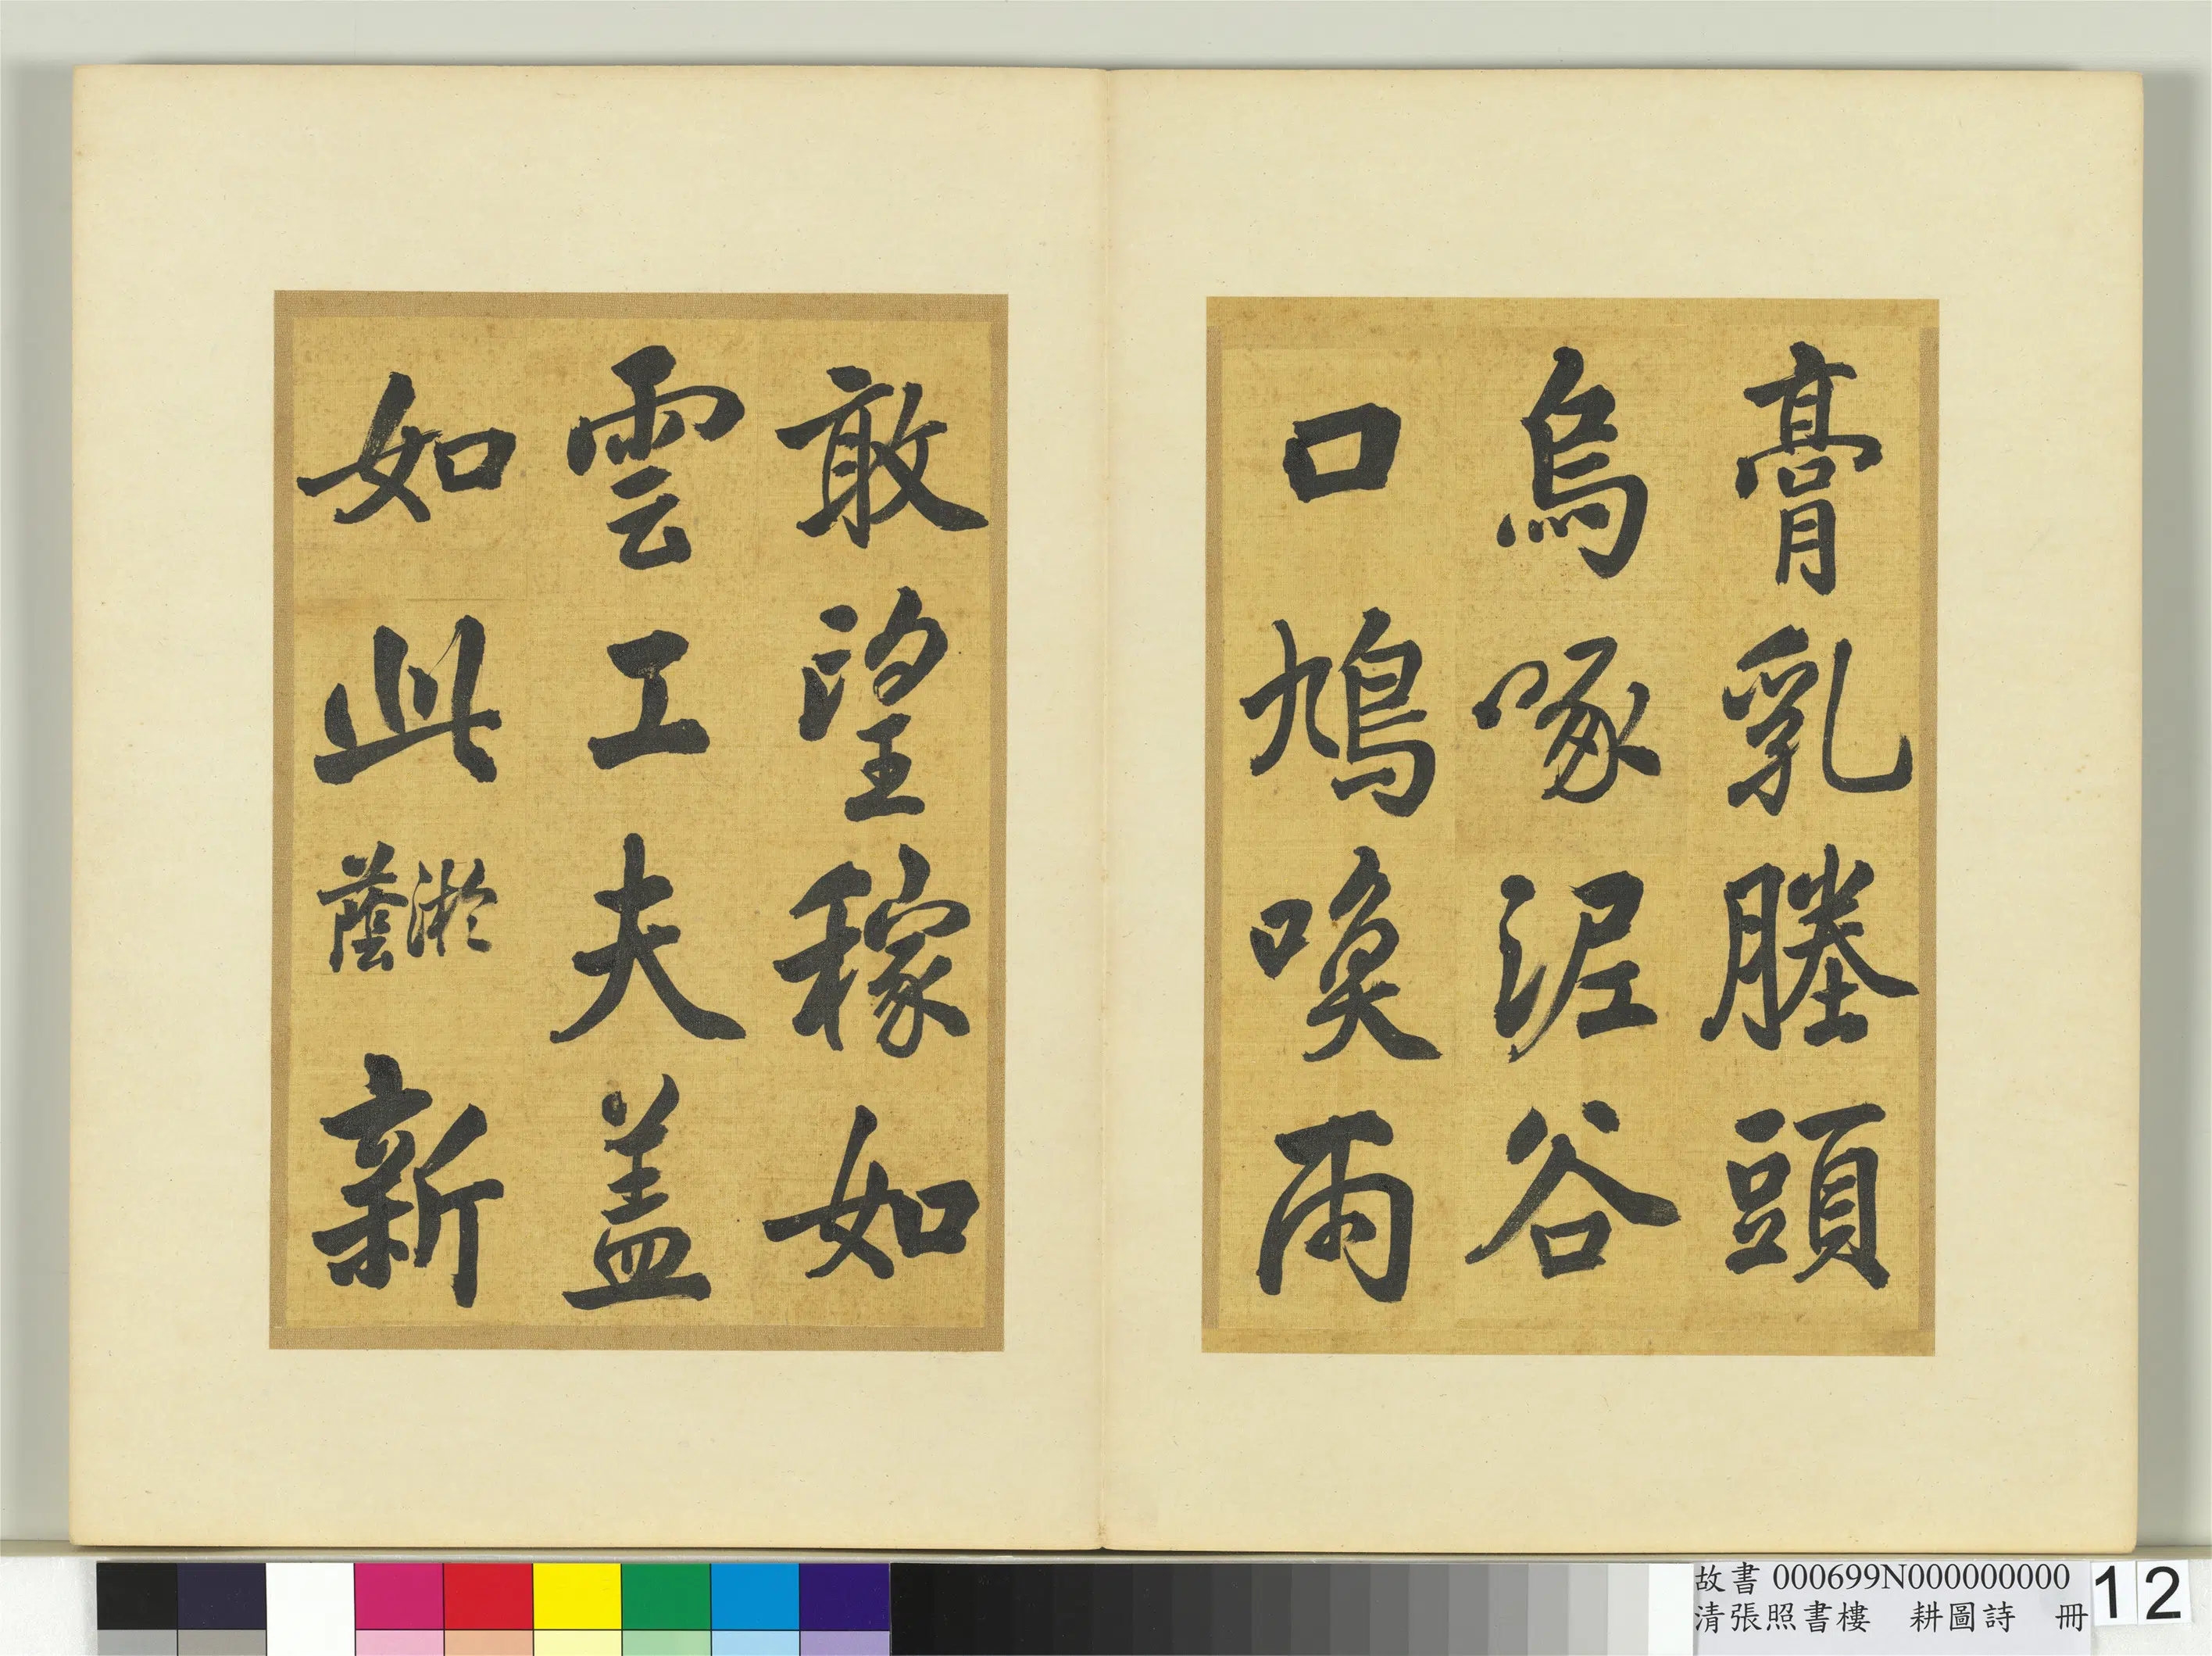 膏乳塍頭
烏啄泥谷
口鳩喚雨
敢望稼如
雲工夫盖
如此淤蔭新
故書 000699N000000000
清張照書樓　耕圖詩　冊
12